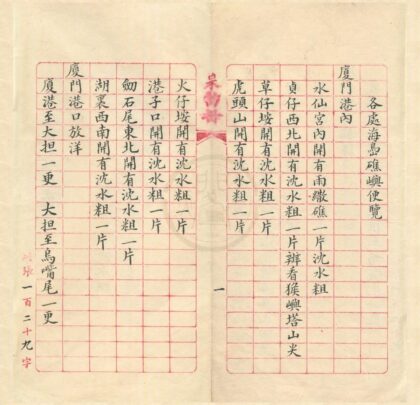 各處海島礁嶼便覽
廈門港內
水仙宮內開有南線礁一片沈水粗
貞仔西北開有沈水粗一片辦看猴嶼塔山尖
草仔垵開有沈水粗一片
虎頭山開有沈水粗一片
一
火仔垵開有沈水粗一片
港子口開有沈水粗一片
劒石尾東北開有沈水粗一片
胡裏西南開有沈水粗一片
廈門港口放洋
廈港至大担一更 大担至烏嘴尾一更
張一百二十九字